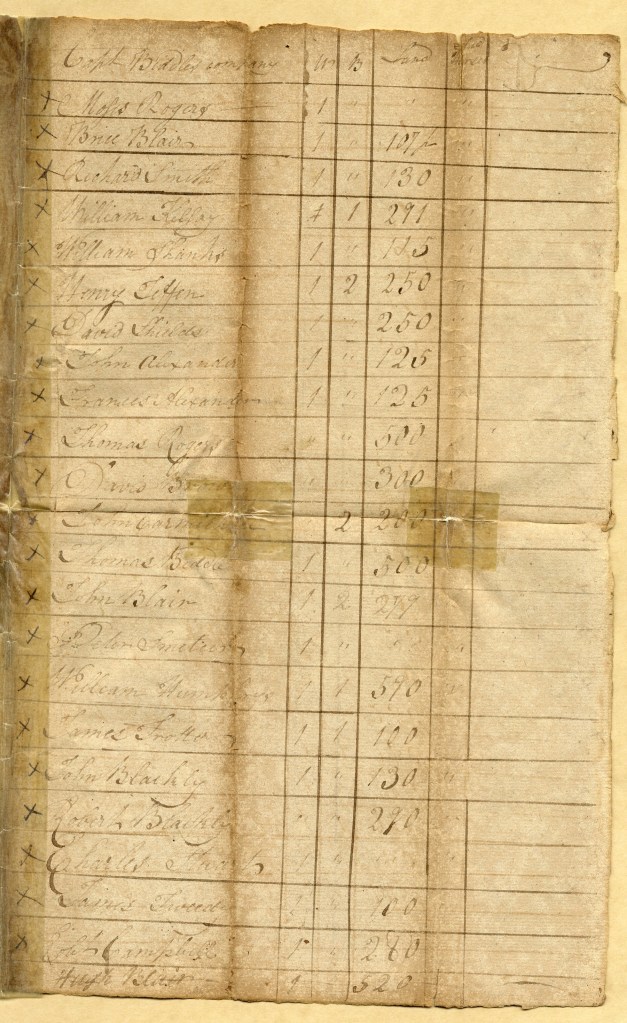 Capt Biddles company W B Land
x Moses Rogers 1 " " "
x Brice Blair 1 " 107½ "
x Richard Smith 1 " 130 "
x William Kelsey 4 1 291 "
x William Shanks 1 " 145 "
x Henry 1 2 250 "
x David Shields " " 250 "
x John Alexander 1 " 125 "
x Frances Alexander 1 " 125 "
x Thomas Rogers " " 500 "
x David " " 300 "
x John 2 200
x Thomas Biddle 1 " 500 "
x John Blair 1 2 279 "
x Peter 1 " " "
x William Humphreys 1 1 570 "
x James Trotter 1 1 100 "
x John Blackly 1 " 130 "
x Robert Blackly " " 290 "
x Charles 1 " " "
x James Tweed 1 " 100 "
x Campbell 1 " 280
Hugh Blair 1 520